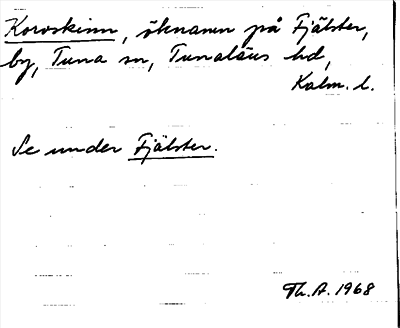 Koroskinn, öknamn på Fjälster,
by, Tuna sn, Tunaläns hd,
Kalm. l.
Se under Fjälster.
Th. A. 1968